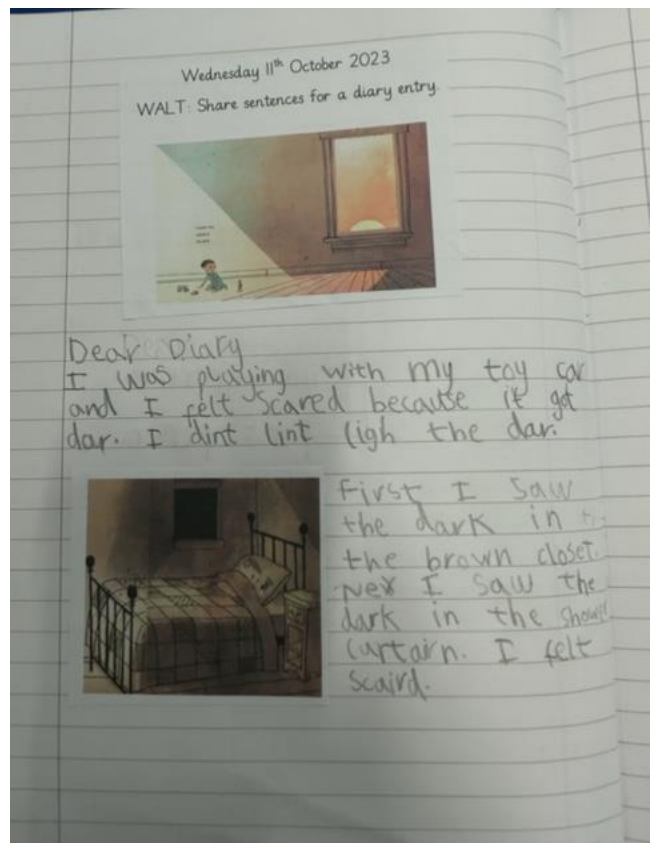 Wednesday 11th October 2023
WALT: Share sentences for a diary entry.
Dear Diary
I was playing with my toy car
and I felt scared because it got
dar. I dint lint ligh the dar.
First I saw
the dark in
the brown closet.
Nex I saw the
dark in the shower
curtairn. I felt
scaird.